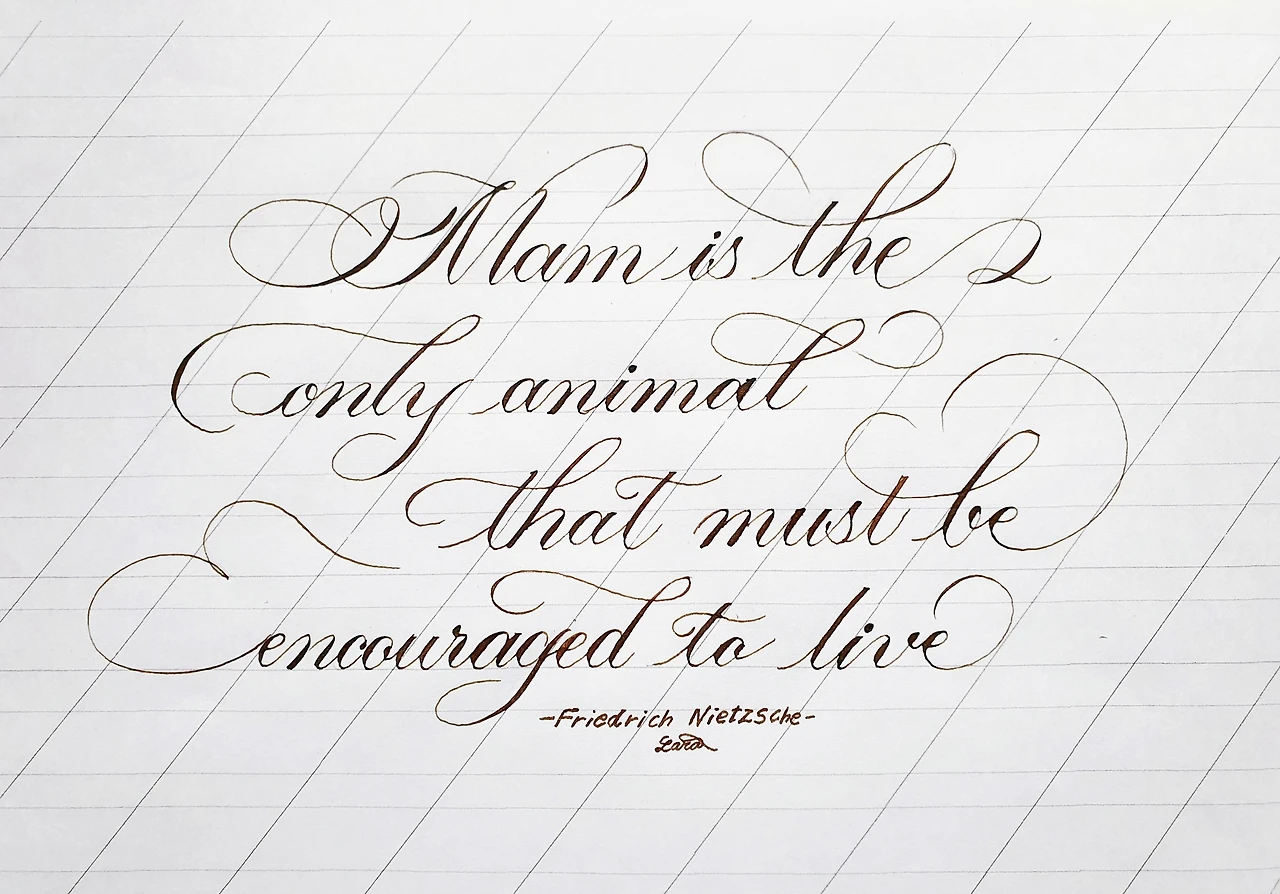 Mam is the
only animal
that must be
encouraged to live
-Friedrich Nietzsche-
Lara